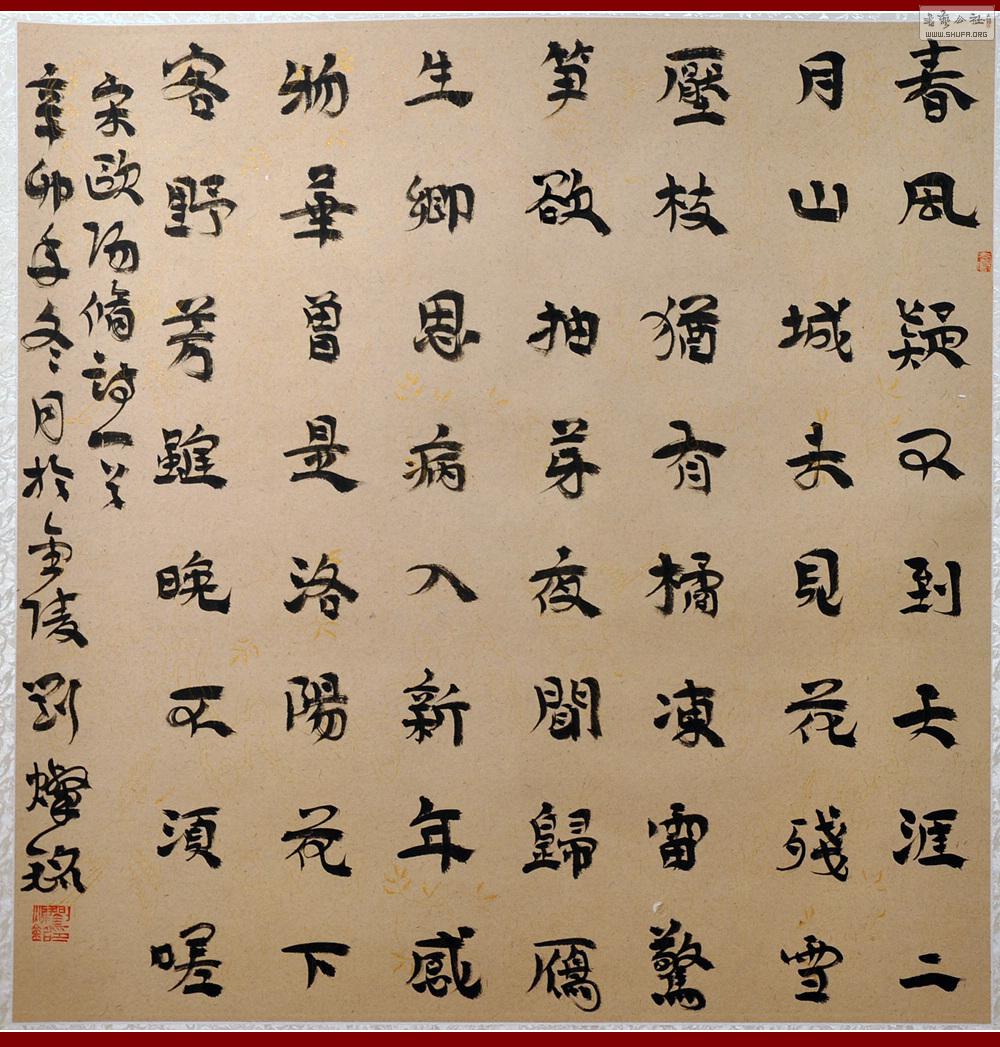 春風疑不到天涯二
月山城未見花殘雪
壓枝猶有橘凍雷驚
笋欲抽芽夜聞歸鴈
生鄉思病入新年感
物華曾是洛陽花下
客野芳雖晚不須嗟
宋歐陽脩詩一首
辛卯年冬月於金陵劉燦銘
书艺公社
WWW.SHUFA.ORG